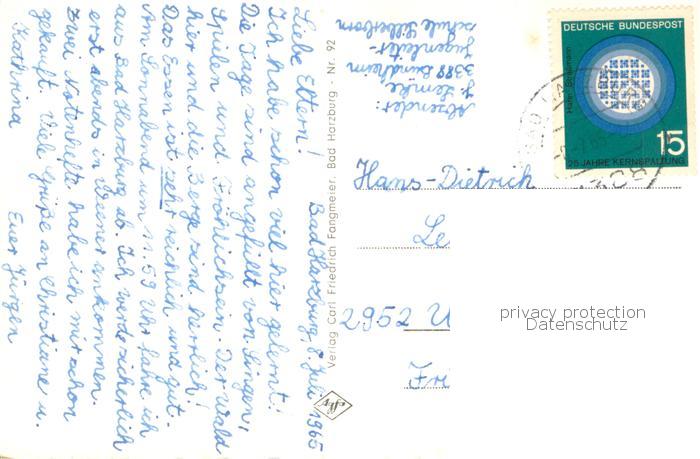 Bad Harzburg, 8. Juli 1965
Liebe Eltern!
Ich habe schon viel hier gelernt!
Die Tage sind angefüllt von Singen,
Spielen und Fröhlichsein. Der Wald
hier und die Berge sind herrlich!
Das Essen ist sehr reichlich und gut.
Am Sonnabend um 11.59 Uhr fahre ich
aus Bad Harzburg ab. Ich werde sicherlich
erst abends in Weener ankommen.
Zwei Notenhefte habe ich mir schon
gekauft. Viele Grüße an Christiane u.
Kathrina
Euer Jürgen
Absender:
J. Lemke
3388 Bündheim
Jugendleiter-
schule Silberborn
Verlag Carl Friedrich Fangmeier, Bad Harzburg - Nr. 92
DEUTSCHE BUNDESPOST
Hahn Strassmann
15
25 JAHRE KERNSPALTUNG
Hans-Dietrich
Le
2952 U
Fri
privacy protection
Datenschutz